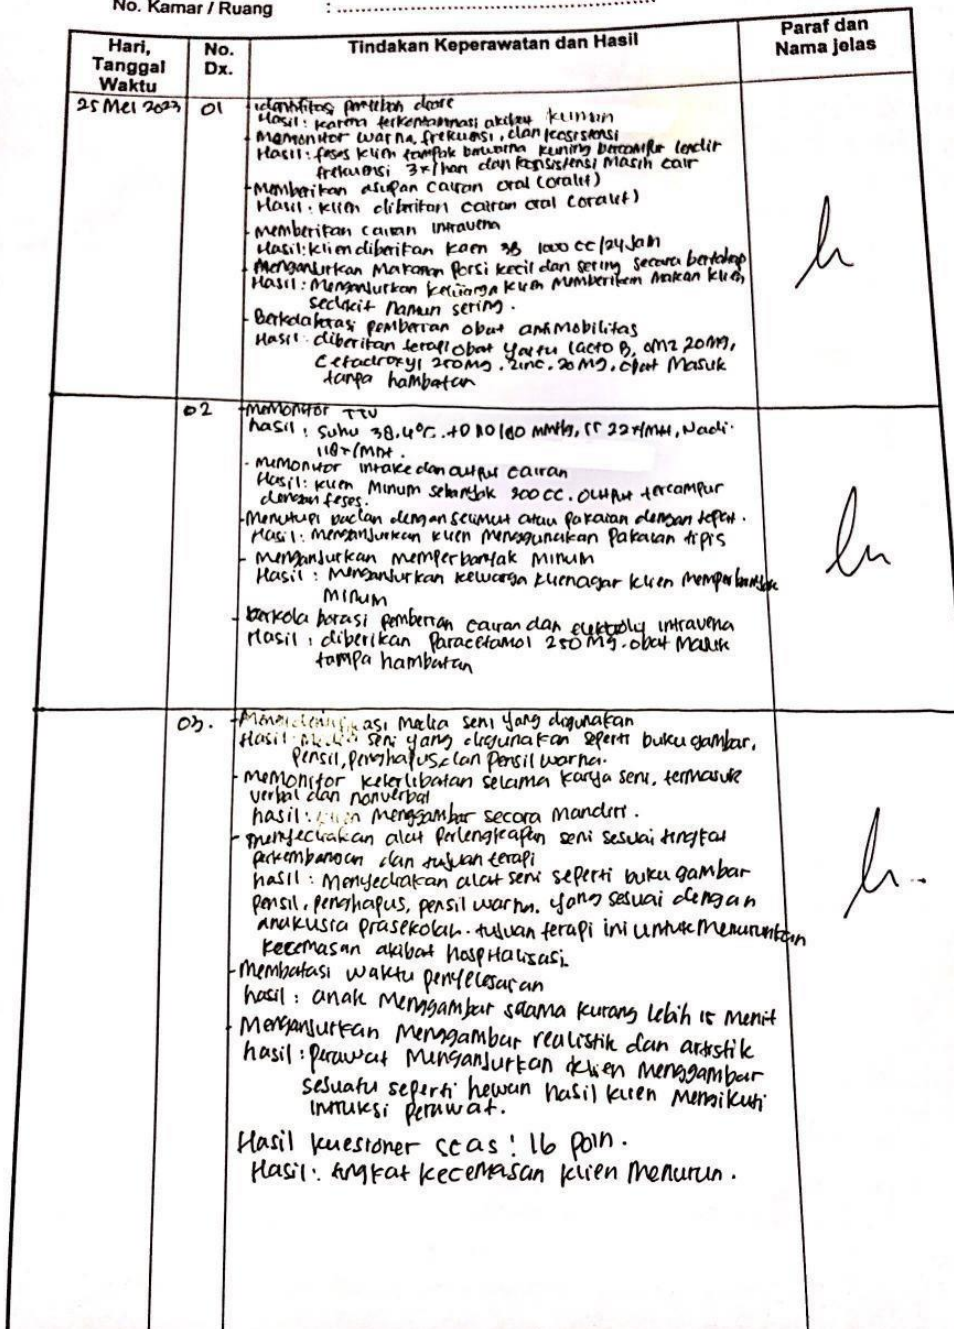 No. Kamar / Ruang : ..............................................................
Hari, Tanggal Waktu
No. Dx.
Tindakan Keperawatan dan Hasil
Paraf dan Nama jelas
25 Mei 2023 01
identifitas diare
Hasil: karna terkontaminasi akibat kuman
- Memonitor warna, frekuensi, dan
Hasil: feses klien tampak bewarna kuning bercampur lendir
frekuensi 3x/hari dan konsistensi masih cair
- Memberikan asupan cairan oral (oralit)
Hasil: klien diberikan cairan oral (oralit)
- Memberikan cairan intravena
Hasil: klien diberikan kaen 3B 1000 cc/24 Jam
- Menganjurkan Makanan Porsi kecil dan sering secara bertahap
Hasil: Menganjurkan keluarga klien memberikan makan klien
sedikit namun sering.
- Berkolaborasi pemberian obat antiMobilitas
Hasil: diberikan terapi obat yaitu lacto B, OMZ 20 Mg,
Cefadroxyl 250 Mg, zinc, 20 Mg, obat Masuk
tanpa hambatan
02
- MeMonitor TTV
hasil: Suhu 38.4°C. mmHg, rr 22x/Mnt, Nadi:
118x/Mnt.
- meMonitor intake dan output cairan
Hasil: klien Minum sebanyak cc. Output tercampur
dengan feses.
- Menutupi badan dengan selimut atau pakaian dengan tepat.
Hasil: Menganjurkan klien menggunakan Pakaian tipis
- Menganjurkan memperbanyak minum
Hasil: Menganjurkan keluarga klien agar klien memperbanyak
Minum
- berkolaborasi pemberian cairan dan intravena
Hasil: diberikan Paracetamol 250 Mg. obat Masuk
tampa hambatan
03.
- asi Media seni yang digunakan
Hasil: Media seni yang digunakan seperti buku gambar,
pensil, penghapus, dan pensil warna.
- MeMonitor keterlibatan selama karya seni, termasuk
verbal dan nonverbal
hasil: klien Menggambar secara Mandiri.
- menyediakan alat perlengkapan seni sesuai tingkat
perkembangan dan tujuan terapi
hasil: Menyediakan alat seni seperti buku gambar
pensil, penghapus, pensil warna. yang sesuai dengan
anak usia prasekolah. tujuan terapi ini untuk Menurunkan
kecemasan akibat hospitalisasi
- Membatasi waktu penyelesaian
hasil: anak Menggambar selama kurang lebih 15 Menit
- Menganjurkan Menggambar realistik dan artistik
hasil: perawat Menganjurkan klien Menggambar
sesuatu seperti hewan hasil klien Mengikuti
perawat.
Hasil kuesioner scas: 16 poin.
Hasil: tingkat kecemasan klien Menurun.